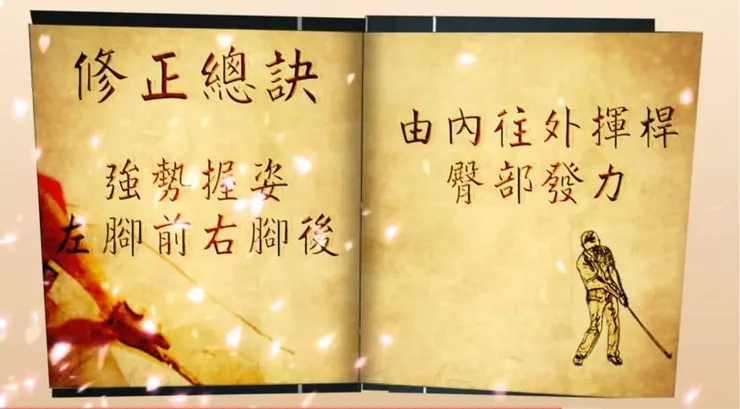 修正總訣
強勢握姿
左腳前右腳後
由內往外揮桿
臀部發力